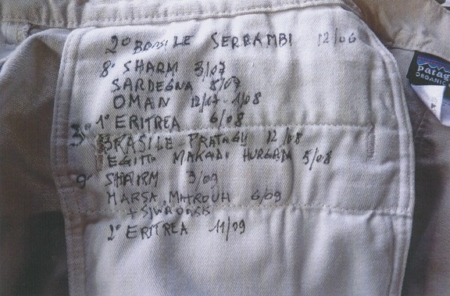 2° BRASILE SERRAMBI 12/06
8° SHARM 3/07
SARDEGNA 8/07
OMAN 12/07-1/08
1° ERITREA 6/08
3° BRASILE PRATAGY 12/08
EGITTO MAKADI HURGADA 5/08
9° SHARM 3/09
MARSA MATROUH 6/09
+ SIWA OASIS
2° ERITREA 11/09
patag
ORGANIC